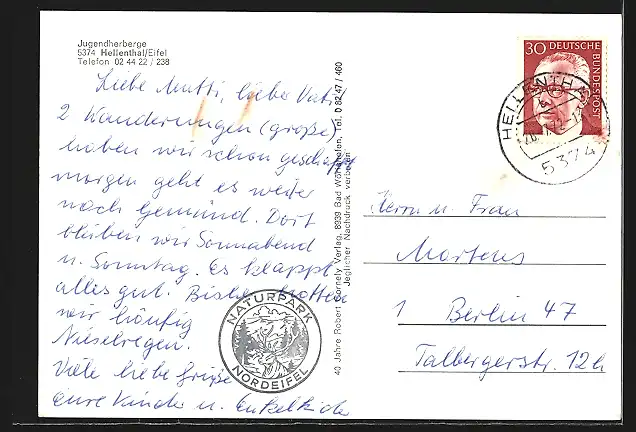 Jugendherberge
5374 Hellenthal/Eifel
Telefon 02 44 22 / 238
Liebe Mutti, lieber Vati
2 Wanderungen (große)
haben wir schon geschafft
morgen geht es weiter
nach Gemünd. Dort
bleiben wir Sonnabend
u. Sonntag. Es klappt
alles gut. Bisher hatten
wir häufig
Nieselregen.
Viele liebe Grüße
eure Kinder u. Enkelkinder
NATURPARK
NORDEIFEL
40 Jahre Robert Cornely Verlag, 8939 Bad Wörishofen, Tel. D 82 47 / 460
Jeglicher Nachdruck verboten
30 DEUTSCHE
BUNDESPOST
HELLENTHAL
5374
Herrn u. Frau
Martens
1 Berlin 47
Talbergerstr. 12h